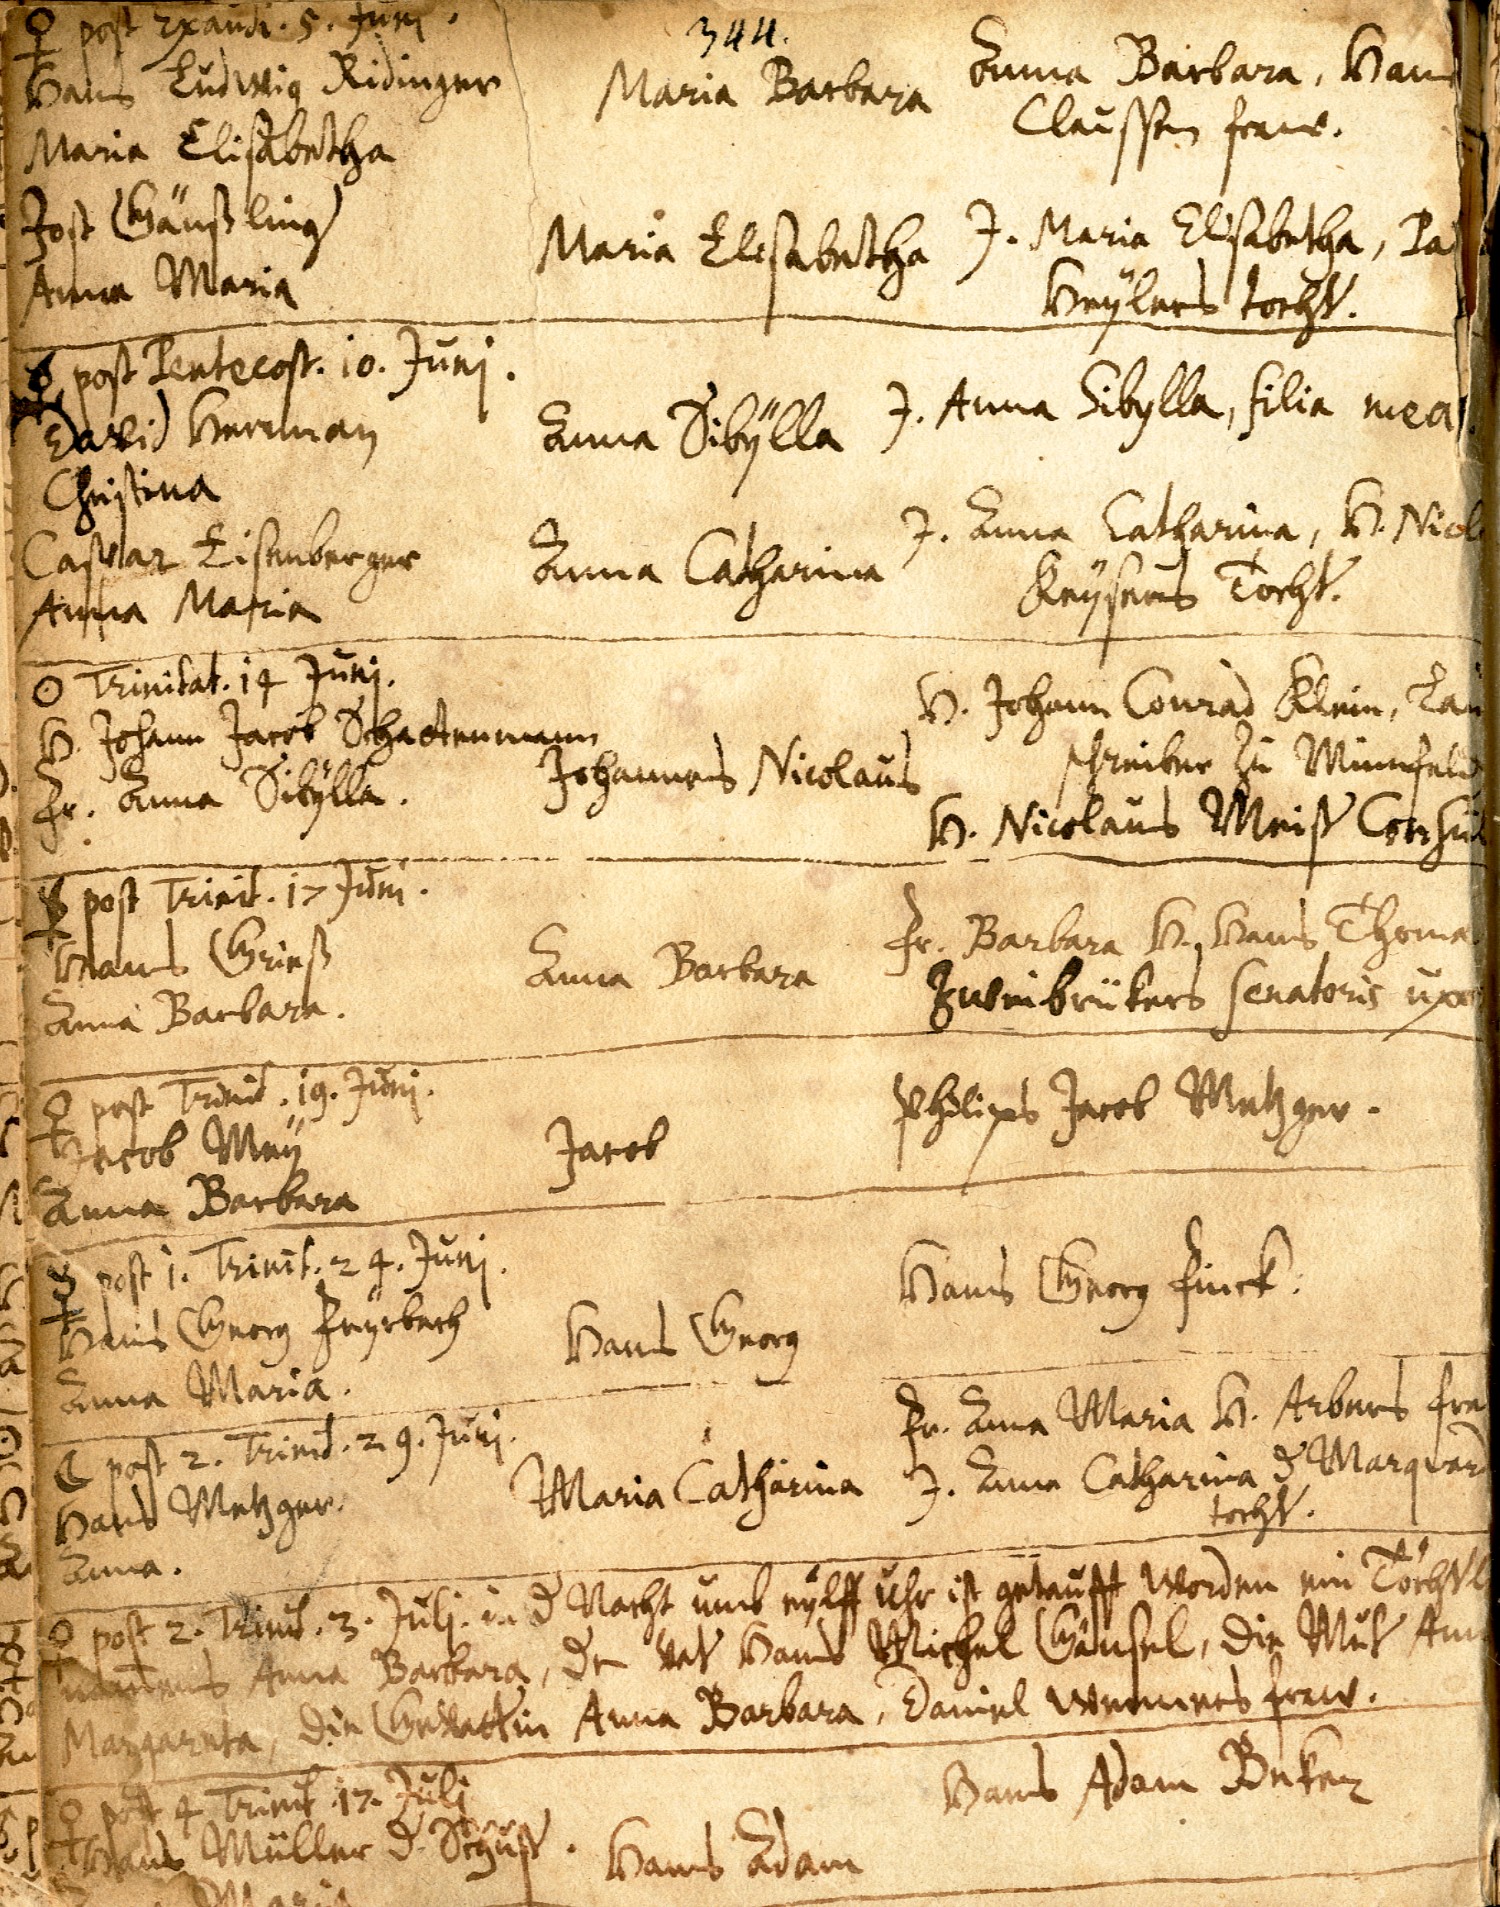 344.
♀ post Exaudi. 5. Junj.
Hans Ludwig Ridinger
Maria Elisabetha
Maria Barbara
Anna Barbara, Hans
Claussen fraw.
Jost Gänßling
Anna Maria
Maria Elisabetha
J. Maria Elisabetha,
Heÿlers tocht.
☿ post Pentecost. 10. Junj.
David Herman
Christina
Anna Sibÿlla
J. Anna Sibylla, filia mea.
Caspar Eisenberger
Anna Maria
Anna Catharina
J. Anna Catharina, H. Nicol
Keÿsers Tocht.
☉ Trinitat. 14 Junj.
H. Johann Jacob Schattenmann
Fr. Anna Sibÿlla.
Johannes Nicolaus
H. Johann Conrad Klein,
schreiber zu Minnfeld
H. Nicolaus
☿ post Trinit. 17 Junj.
Hans Grieß
Anna Barbara.
Anna Barbara
Fr. Barbara H. Hans Thoma
Zweibrükers senatoris uxor
♀ post Trinit. 19. Junj.
Jacob Meÿ
Anna Barbara
Jacob
Philips Jacob Metzger.
☿ post 1. Trinit. 24. Junj.
Hans Georg
Anna Maria.
Hans Georg
Hans Georg Finck.
☾ post 2. Trinit. 29. Junj.
Hans Metzger.
Anna.
Maria Catharina
Fr. Anna Maria H. Arbers
J. Anna Catharina d Marquard
tocht.
♀ post 2. Trinit. 3. Julj. in d Nacht umb eylff Uhr ist getaufft worden ein
nahmens Anna Barbara, der vat Hans Michel Gänsel, die Mut
Margareta, die Gevattin Anna Barbara, Daniel Wenners fraw.
♀ post 4 Trinit. 17. Julj
Hans Müller d.
Maria
Hans Adam
Hans Adam Beker